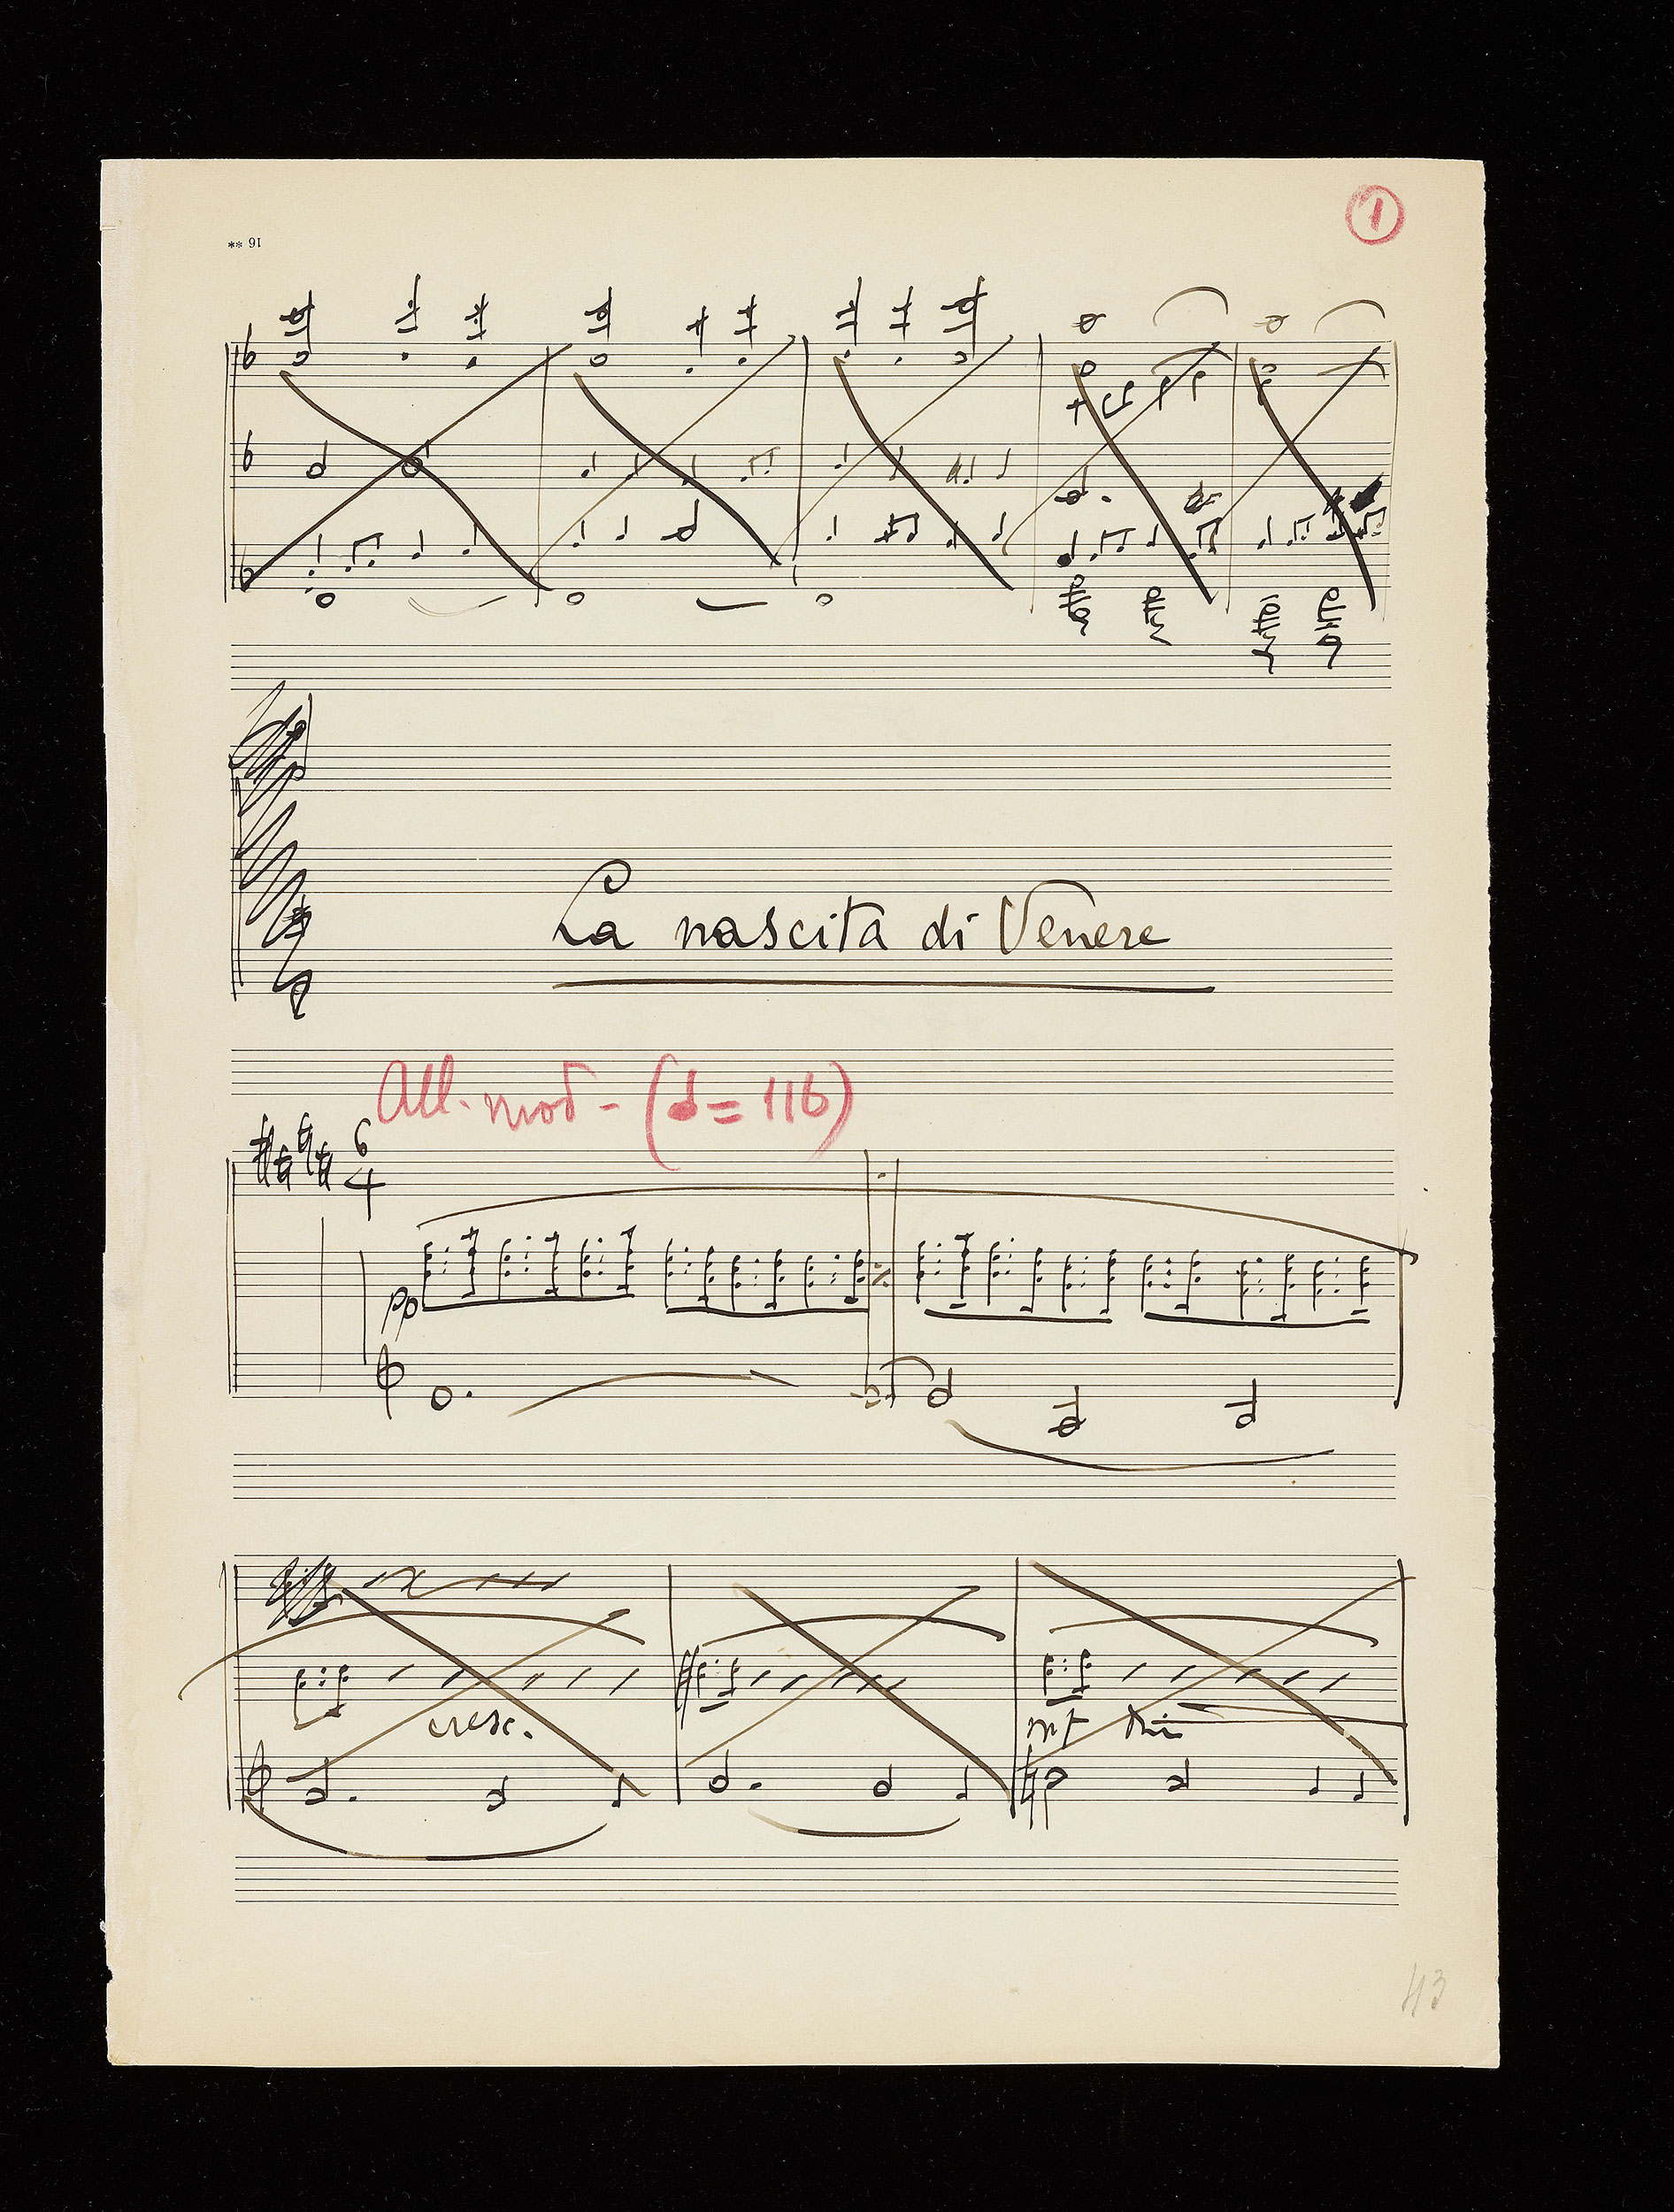 1
** 16
La nascita di Venere
All. mod - (𝅗𝅥 = 116)
6
4
pp
cresc.
mf
43